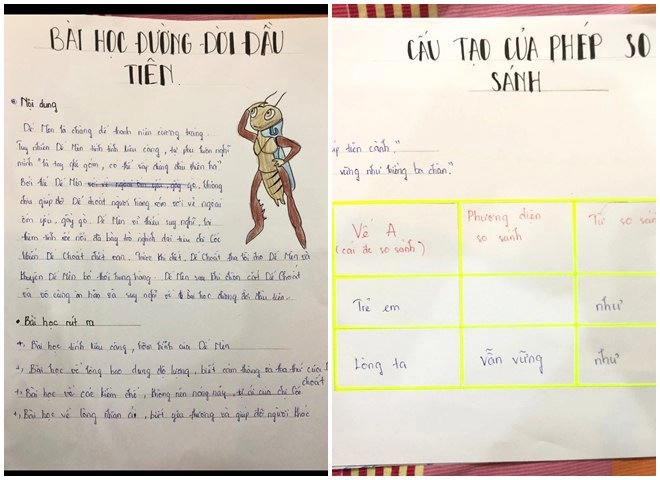 BÀI HỌC ĐƯỜNG ĐỜI ĐẦU
TIÊN
Nội dung
Dế Mèn là chàng dế thanh niên cường tráng
Tuy nhiên Dế Mèn tính tình kiêu căng, tự phụ luôn nghĩ
mình "là tay ghê gớm, có thể sắp đứng đầu thiên hạ"
Bởi thế Dế Mèn không
chịu giúp đỡ Dế choắt người hàng xóm với vẻ ngoài
ốm yếu, gầy gò. Dế Mèn vì thiếu suy nghĩ, lại
thêm tính xốc nổi đã bày trò nghịch dại trêu chị Cốc
khiến Dế Choắt chết oan. Trước khi chết, Dế Choắt tha lỗi cho Dế Mèn và
khuyên Dế Mèn bỏ thói hung hăng. Dế Mèn sau khi chôn cất Dế Choắt
và vô cùng ân hận và suy nghĩ về bài học đường đời đầu tiên.
Bài học rút ra
+, Bài học tính kiêu căng, hống hách của Dế Mèn
+, Bài học về lòng bao dung độ lượng, biết cảm thông và tha thứ của Dế
choắt
+, Bài học về các kiềm chế, không nên nóng nảy, của chị Cốc
+, Bài học về lòng nhân ái, biết yêu thương và giúp đỡ người khác
CẤU TẠO CỦA PHÉP SO
SÁNH
tiền cảnh."
vững như kiềng ba chân."
Vế A
(cái để so sánh)
Phương diện
so sánh
Từ so sán
Trẻ em
như
Lòng ta
vẫn vững
như